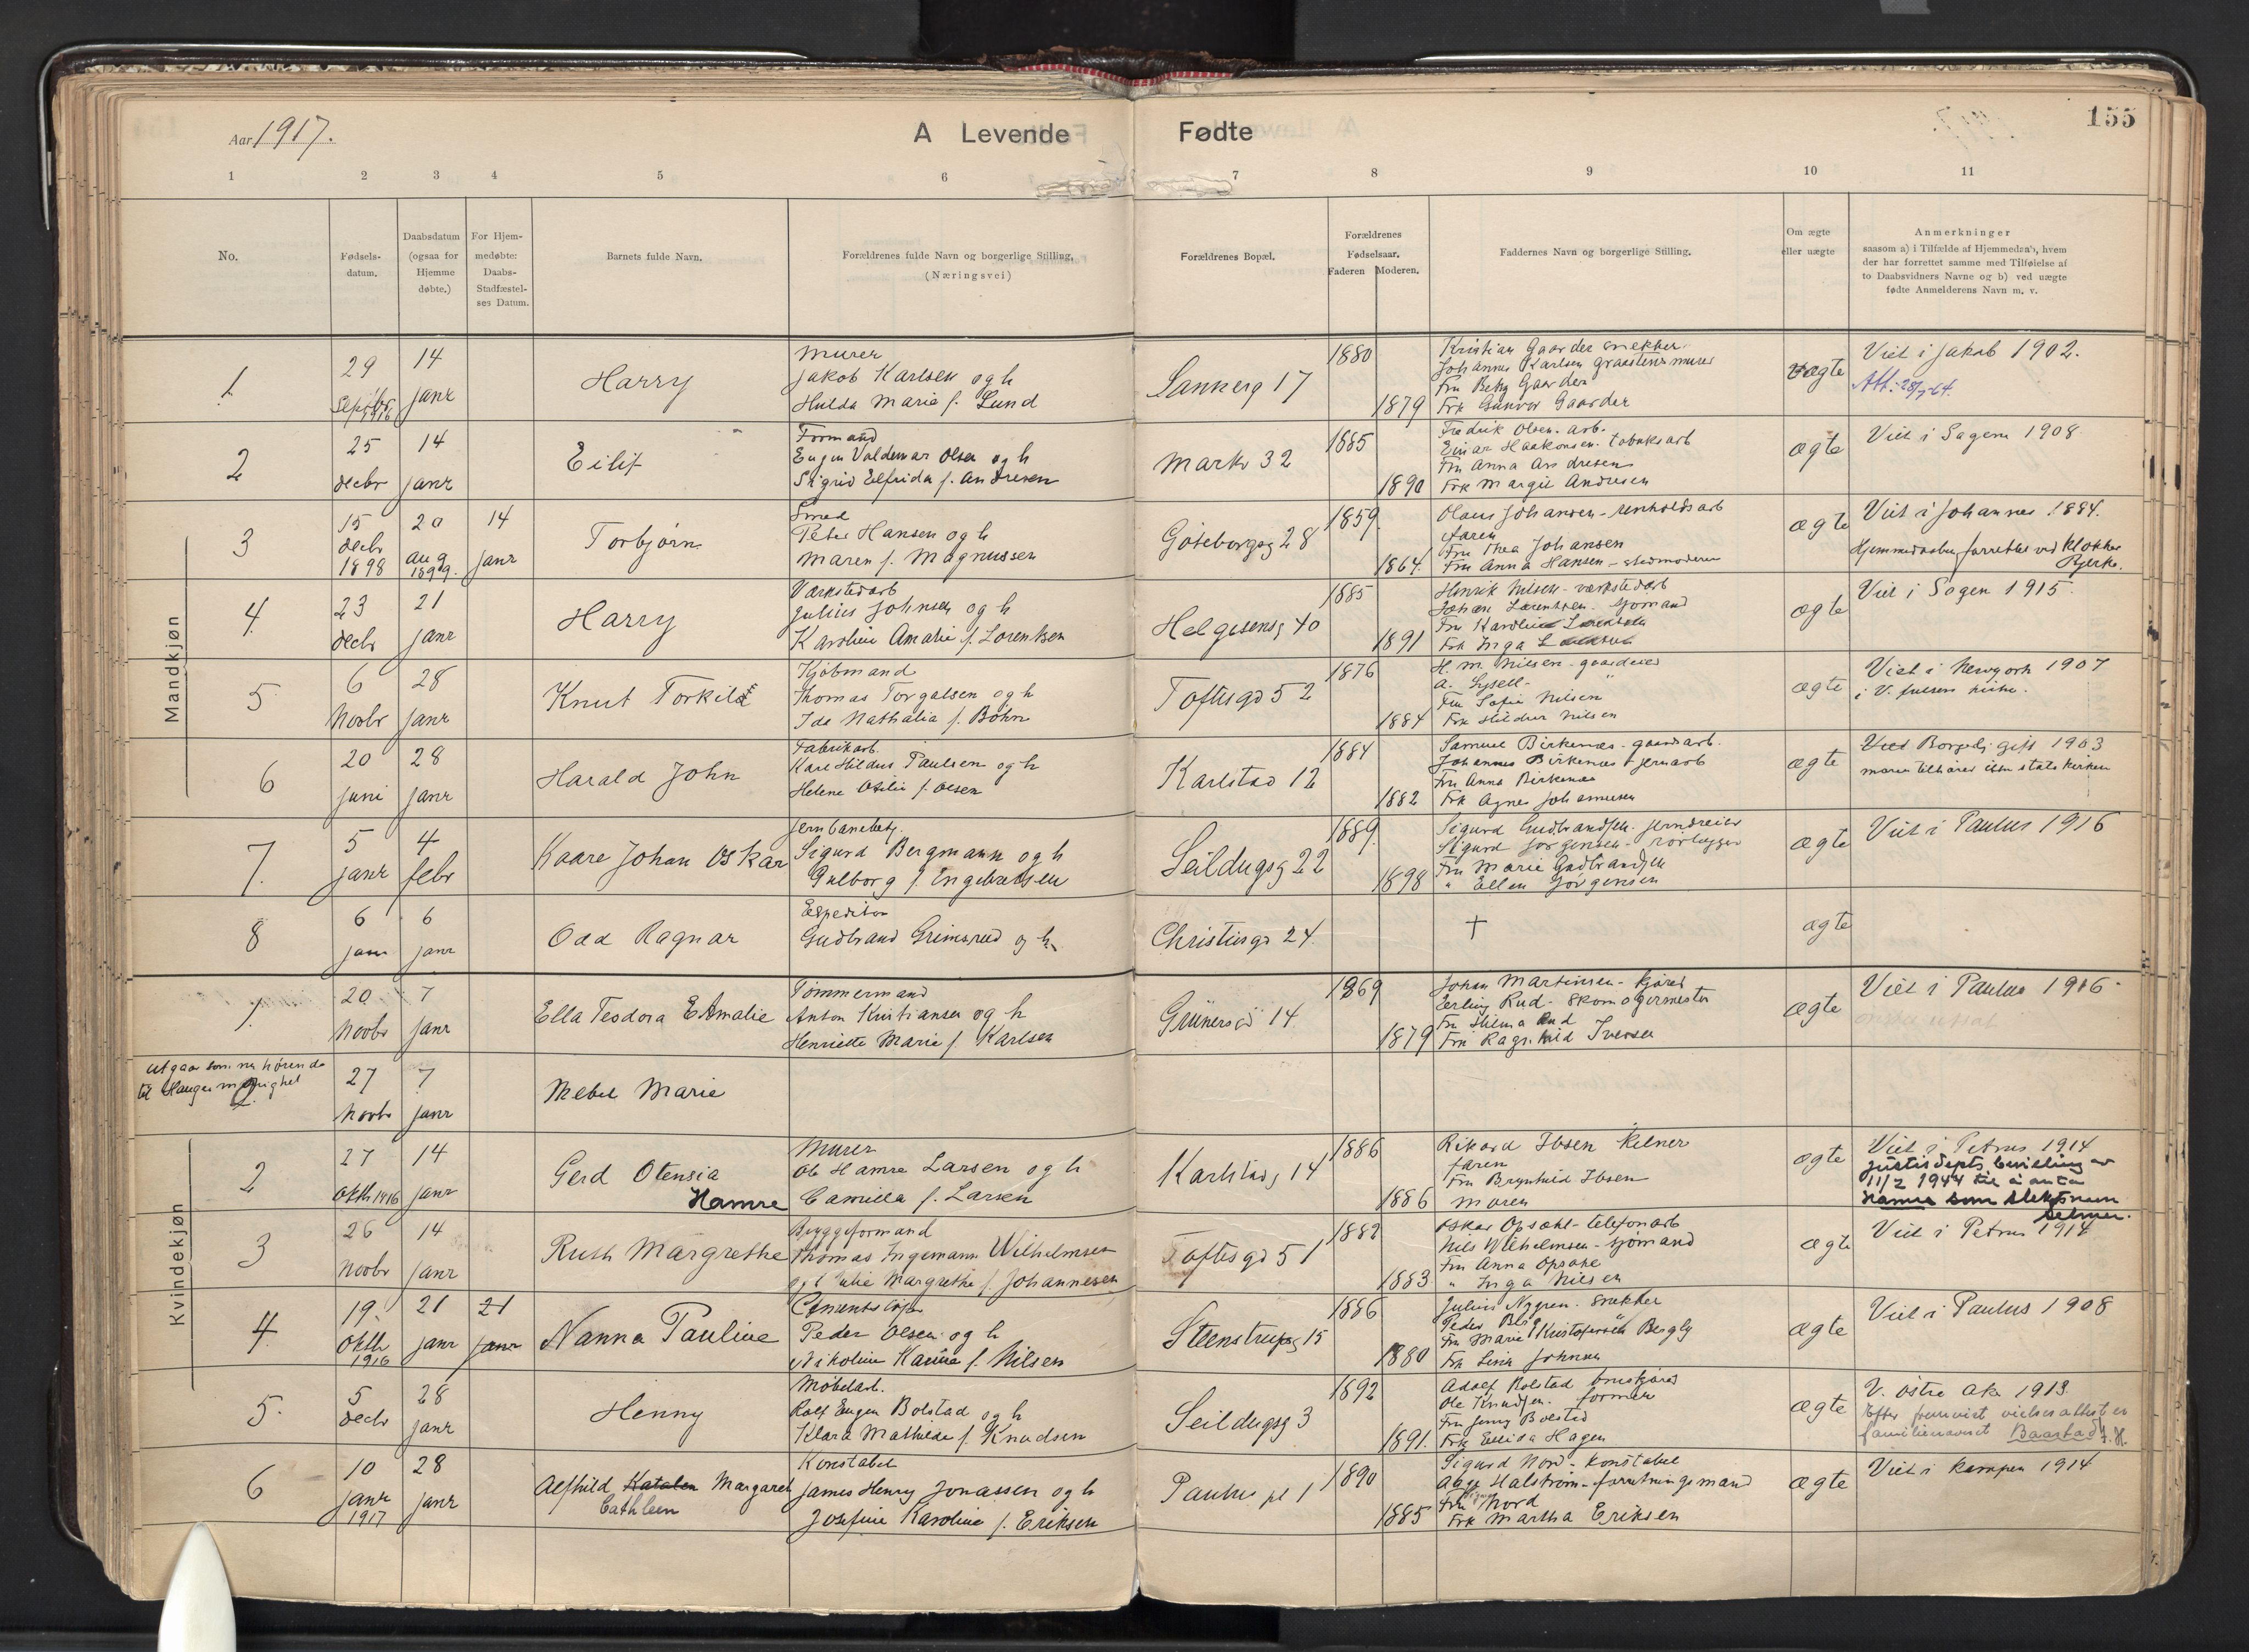 Aar 1917.
A Levende Fødte
155
1 2 3 4 5 6 7 8 9 10 11
No.
Fødsels-
datum.
Daabsdatum
(ogsaa for
Hjemme
døbte.)
For Hjem-
medøbte:
Daabs-
Stadfæstel-
ses Datum.
Barnets fulde Navn.
Forældrenes fulde Navn og borgerlige Stilling,
(Næringsvei)
Forældrenes Bopæl.
Forældrenes
Fødselsaar.
Faderen Moderen.
Faddernes Navn og borgerlige Stilling.
Om ægte
eller uægte
Anmerkninger
saasom a) i Tilfælde af Hjemmedaab, hvem
der har forrettet samme med Tilføielse af
to Daabsvidners Navne og b) ved uægte
fødte Anmelderens Navn m. v.
Mandkjøn
1
29
Septbr
1916
14
janr
Harry
Murer
Jakob Karlsen og h
Hulda Marie f. Lund
Sannerg 17
1880
1879
Kristian Gaarder snekker
Johannes Karlsen graastensmurer
Fru Betzy Gaarder
Frk Gunvor Gaarder
ægte
Viet i Jakob 1902.
2
25
decbr
14
janr
Eilif
Formand
Eugen Valdemar Olsen og h
Sigrid Elfrida f. Andresen
Markv 32
1885
1890
Fredrik Olsen. arb.
Einar Haakonsen. tobaksarb
Fru Anna Andresen
Frk Margit Andresen
ægte
Viet i Sagene 1908
3
15
decbr
1898
20
aug
1899.
14
janr
Torbjørn
Smed
Peter Hansen og h
Maren f. Magnussen
Göteborgsg 28
1859
1864.
Olaus Johansen - renholdsarb
faren
Fru Thea Johansen
Fru Anna Hansen - stedmoderen
ægte
Viet i Johannes 1884.
Hjemmedaaben forrettet ved klokker
Bjerke.
4
23
decbr
21
janr
Harry
Værkstedarb
Julius Johnsen og h
Karoline Amalie f. Lorentsen
Helgesensg 40
1885
1891
Henrik Nilsen - værkstedarb
Johan Lorentsen. sjømand
Fru Karoline Lorentsen
Frk Inga Lorentsen
ægte
Viet i Sagen 1915.
5
6
Novbr
28
janr
Knut Torkild
Kjøbmand
Thomas Torgalsen og h
Ida Nathalia f. Bøhn
Toftesgd 52
1876
1884
H. M. Nilsen - gaardeier
A. Lysell - "
Fru Sofie Nilsen
Frk Hildur Nilsen
ægte
Viet i Newyork 1907
6
20
juni
28
janr
Harald John
Fabrikarb.
Karl Hildus Paulsen og h
Helene Otilie f. Olsen
Karlstad 12
1884
1882
Samuel Birkenæs - gaardsarb.
Johannes Birkenæs - jernarb
Fru Anna Birkenæs
Frk Agnes Johannesen
ægte
Viet Borgerlig gift 1903
moren tilhører ikke statskirken
7.
5
janr
4
febr
Kaare Johan Oskar
Jernbanebetj.
Sigurd Bergmann og h
Gulborg f. Engebretsen
Seildugsg 22
1889.
1898
Sigurd Gudbrandsen. jerndreier
Sigurd Jørgensen - rørlægger
Fru Marie Gudbrandsen
" Ellen Jørgensen
ægte
Viet i Paulus 1916
8
6
janr
6
janr
Odd Ragnar
Expeditør
Gudbrand Grimsrud og h.
Christiesgs 24.
†
ægte
Kvindekjøn
1.
20
Novbr
7
janr
Ella Teodora E Amalie
Tømmermand
Anton Kristiansen og h
Henriette Marie f. Karlsen
Grünersgd 14.
1869
1879
Johan Martinsen - kjører
Erling Rud - skomagermester
Fru Hilma Rud
Frk Ragnhild Iversen
ægte
Viet i Paulus 1916.
utgaar som nu hørende
til Hauges menighet
2.
27
Novbr
7
janr
Mebel Marie
2
27
Oktb 1916
14
janr
Gerd Otensia
Hamre
Murer
Ole Hamre Larsen og h
Camilla f. Larsen
Karlstadg 14
1886
1886
Rikard Ibsen kelner
faren
Fru Brynhild Ibsen
Moren
ægte
Viet i Petrus 1914
Justisdepts bevilling av
11/2 1944 til å anta
Hamre som slektsnavn
3
26
Novbr
14
janr
Ruth Margrethe
Bryggeformand
Thomas Ingemann Wilhelmsen
og h Julie Margrethe f. Johannesen
Toftesgd 51
1882
1883
Oskar Opsahl - telefonarb
Nils Wilhelmsen - sjømand
Fru Anna Opsahl
" Inga Nilsen
ægte
Viet i Petrus 1914
4.
19.
Oktb
1916
21
janr
21
janr
Nanna Pauline
Peder Olsen og h
Nikoline Karine f. Nilsen
Steenstrupsg 15
1886
1880
Julius Nygren. snekker
Fru Marie Kristoffersen Bergby
Frk Lina Johnsen
ægte
Viet i Paulus 1908
5.
5
decbr
28
janr
Henny
Møbelarb.
Rolf Eugen Bolstad og h
Klara Mathilde f. Knudsen
Seildugsg 3
1892
1891.
Adolf Bolstad bruskjører
Ole Knudsen. former
Fru Jenny Bolstad
Frk Ellida Hagen
ægte
V. Østre Aker 1913
Efter fremvist vielsesattest er
familienavnet Baastad J. H.
6
10
janr
1917
28
janr
Alfhild Katalen Margaret
Cathleen
Konstabel
James Henry Jonassen og h
Josefine Karoline f. Eriksen
Paulus pl 1
1890
1885
Sigurd Nord - konstabel
Aage Halstrøm - forretningsmand
Fru Nord
Frk Martha Eriksen
ægte
Viet i Kampen 1914